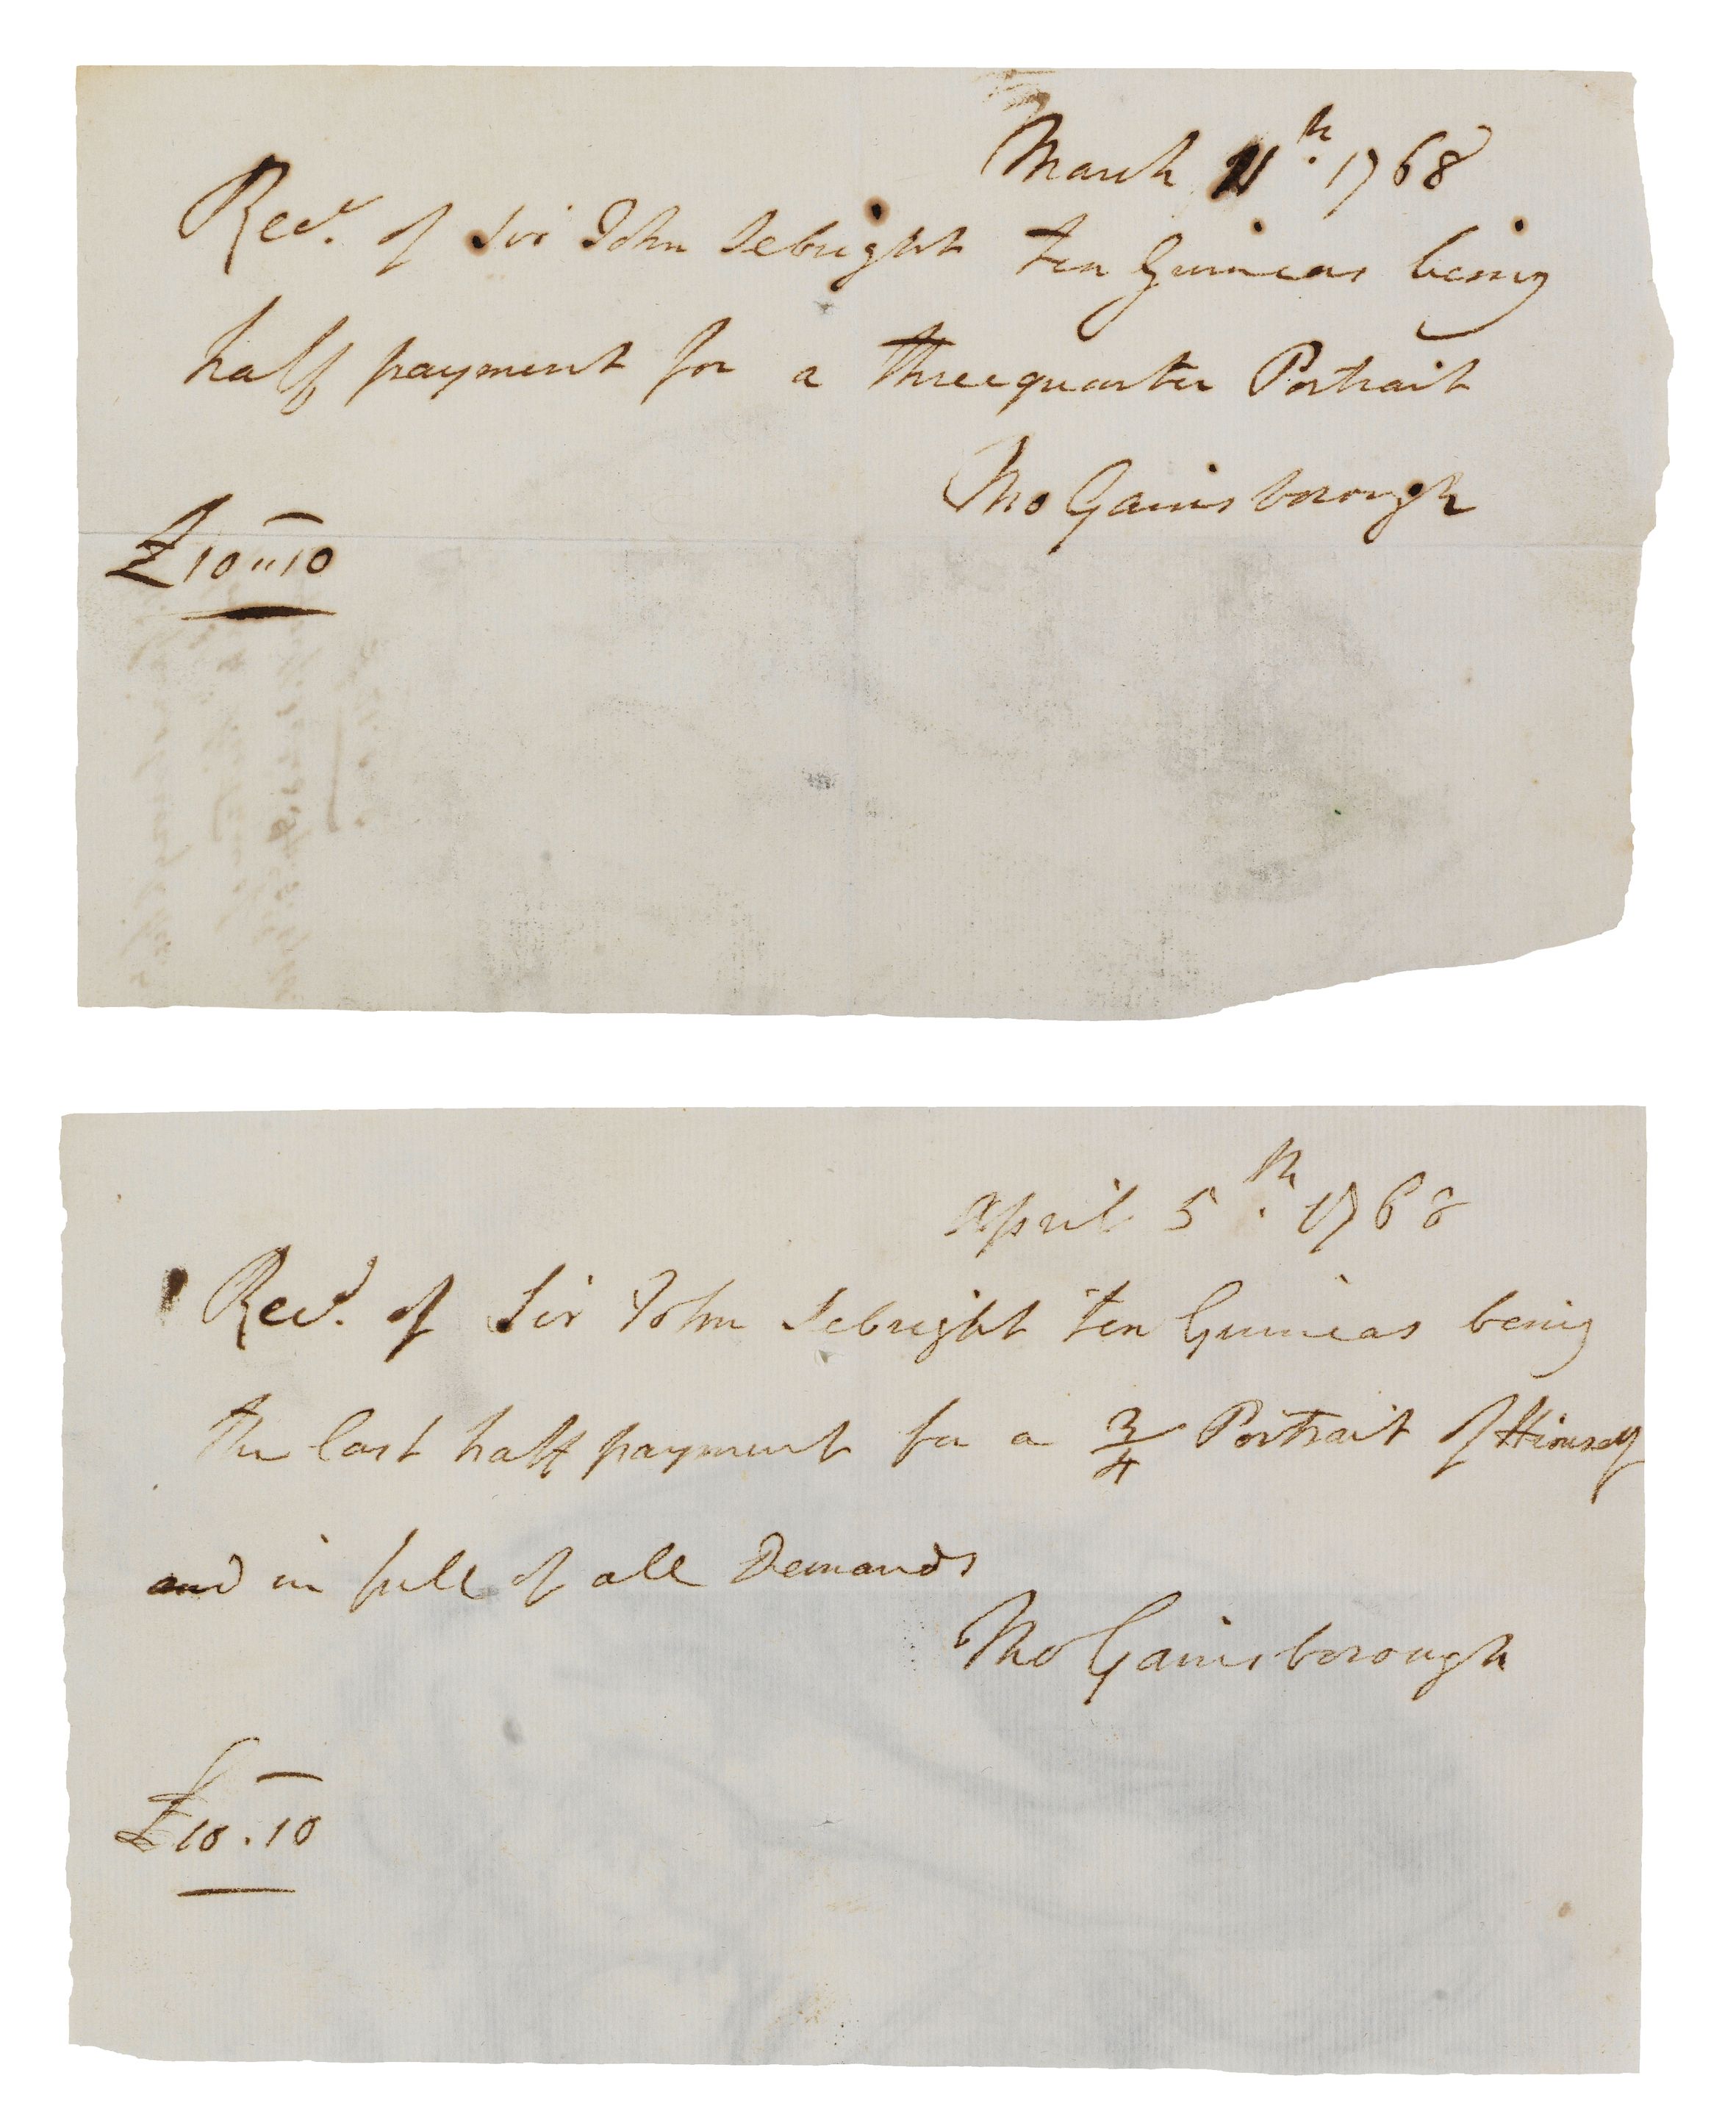 March 11th. 1768
Recd. of Sir John Sebright ten Guineas being
half payment for a threequarter Portrait
Tho Gainsborough
£10"10
April 5th. 1768
Recd. of Sir John Sebright ten Guineas being
the last half payment for a 3/4 Portrait of Himself
and in full of all Demands
Tho Gainsborough
£10.10